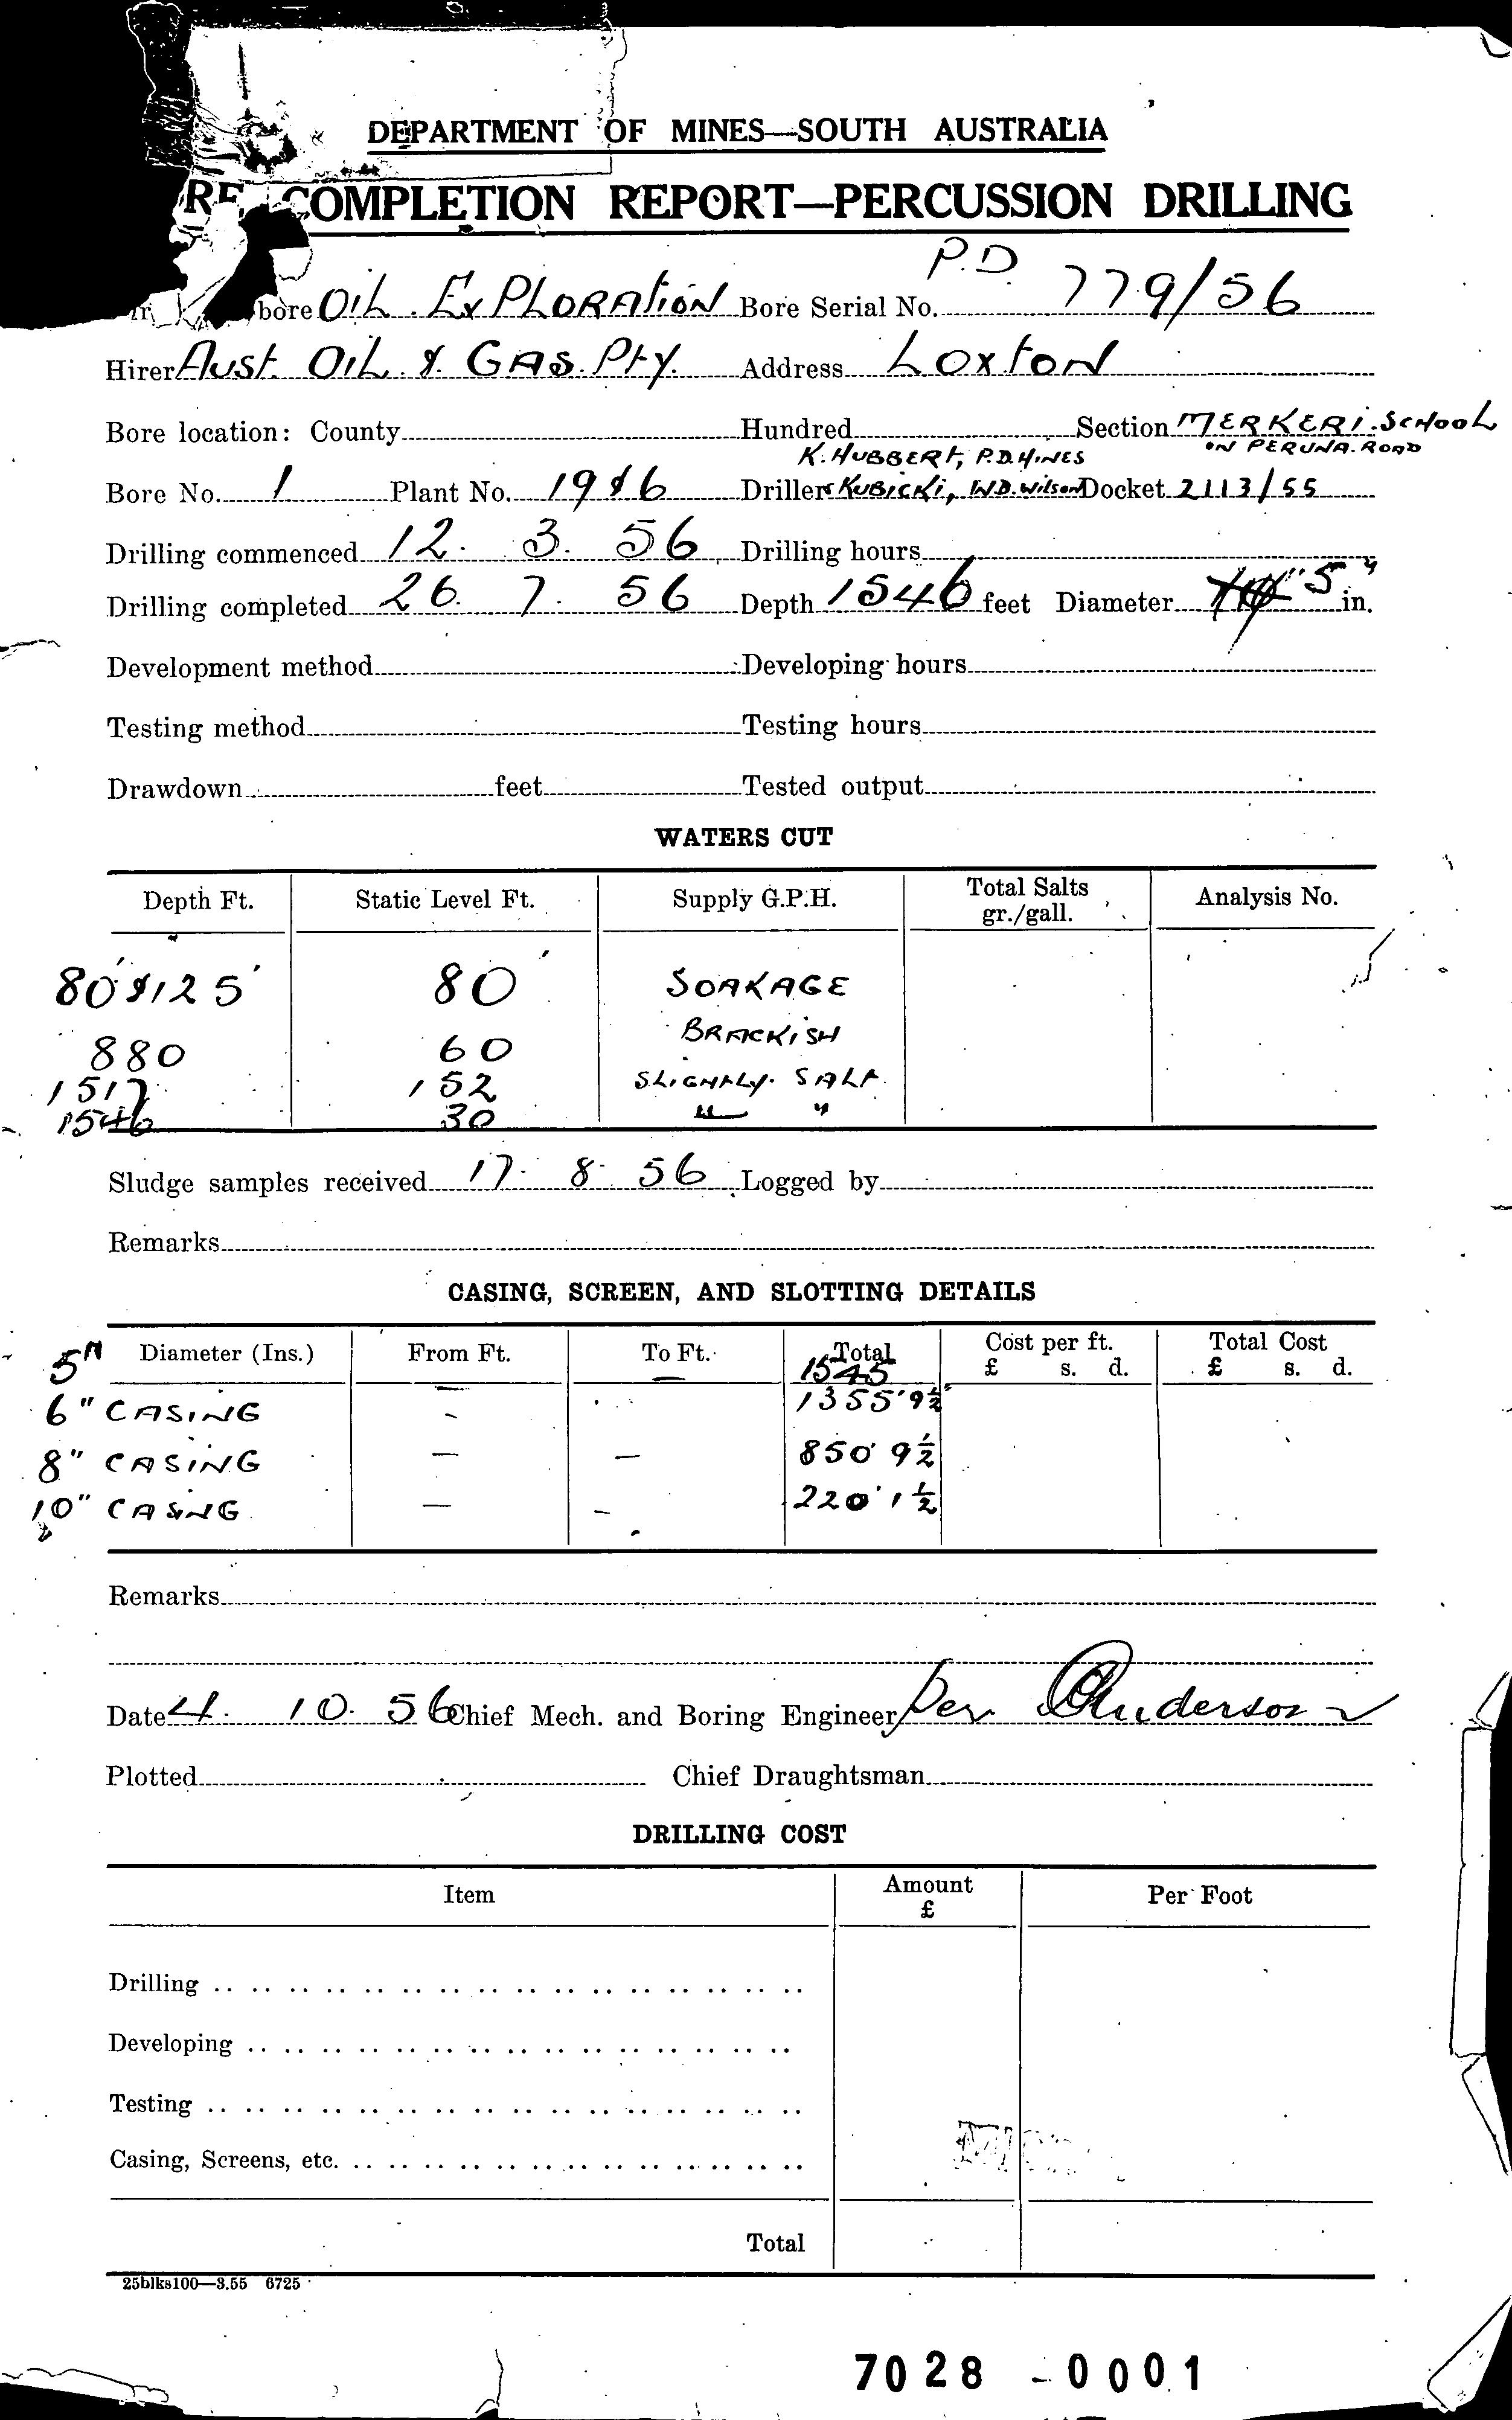 DEPARTMENT OF MINES—SOUTH AUSTRALIA
RE COMPLETION REPORT—PERCUSSION DRILLING
P.D
bore OIL. EXPLORATION Bore Serial No. 779/56
Hirer Aust. OIL. & GAS. Pty. Address LOXTON
Bore location: County Hundred Section MERKERI. SCHOOL
K. HUBBERT, P.D. HINES ON PERUNA. ROAD
Bore No. 1 Plant No. 19 & 6 Drillers KUBICKI, W.D. Wilson Docket 2113/55
Drilling commenced 12. 3. 56 Drilling hours
Drilling completed 26. 7. 56 Depth 1546 feet Diameter 5" in.
Development method Developing hours
Testing method Testing hours
Drawdown feet Tested output
WATERS CUT
Depth Ft. Static Level Ft. Supply G.P.H. Total Salts gr./gall. Analysis No.
80' & 125' 80' SOAKAGE
880 60 BRACKISH
1517 152 SLIGHTLY. SALT.
1546 30 " "
Sludge samples received 17. 8. 56 Logged by
Remarks
CASING, SCREEN, AND SLOTTING DETAILS
Diameter (Ins.) From Ft. To Ft. Total Cost per ft. £ s. d. Total Cost £ s. d.
5" — 1545
6" CASING — 1355' 9½"
8" CASING — — 850' 9½
10" CASING — — 220' 1½
Remarks
Date 4. 10. 56 Chief Mech. and Boring Engineer Per Anderson
Plotted Chief Draughtsman
DRILLING COST
Item Amount £ Per Foot
Drilling .. .. .. .. .. .. .. .. .. .. .. .. .. .. .. ..
Developing .. .. .. .. .. .. .. .. .. .. .. .. .. .. ..
Testing .. .. .. .. .. .. .. .. .. .. .. .. .. .. .. ..
Casing, Screens, etc. .. .. .. .. .. .. .. .. .. .. .. ..
Total
25blks100—3.55 6725
7028 - 0001